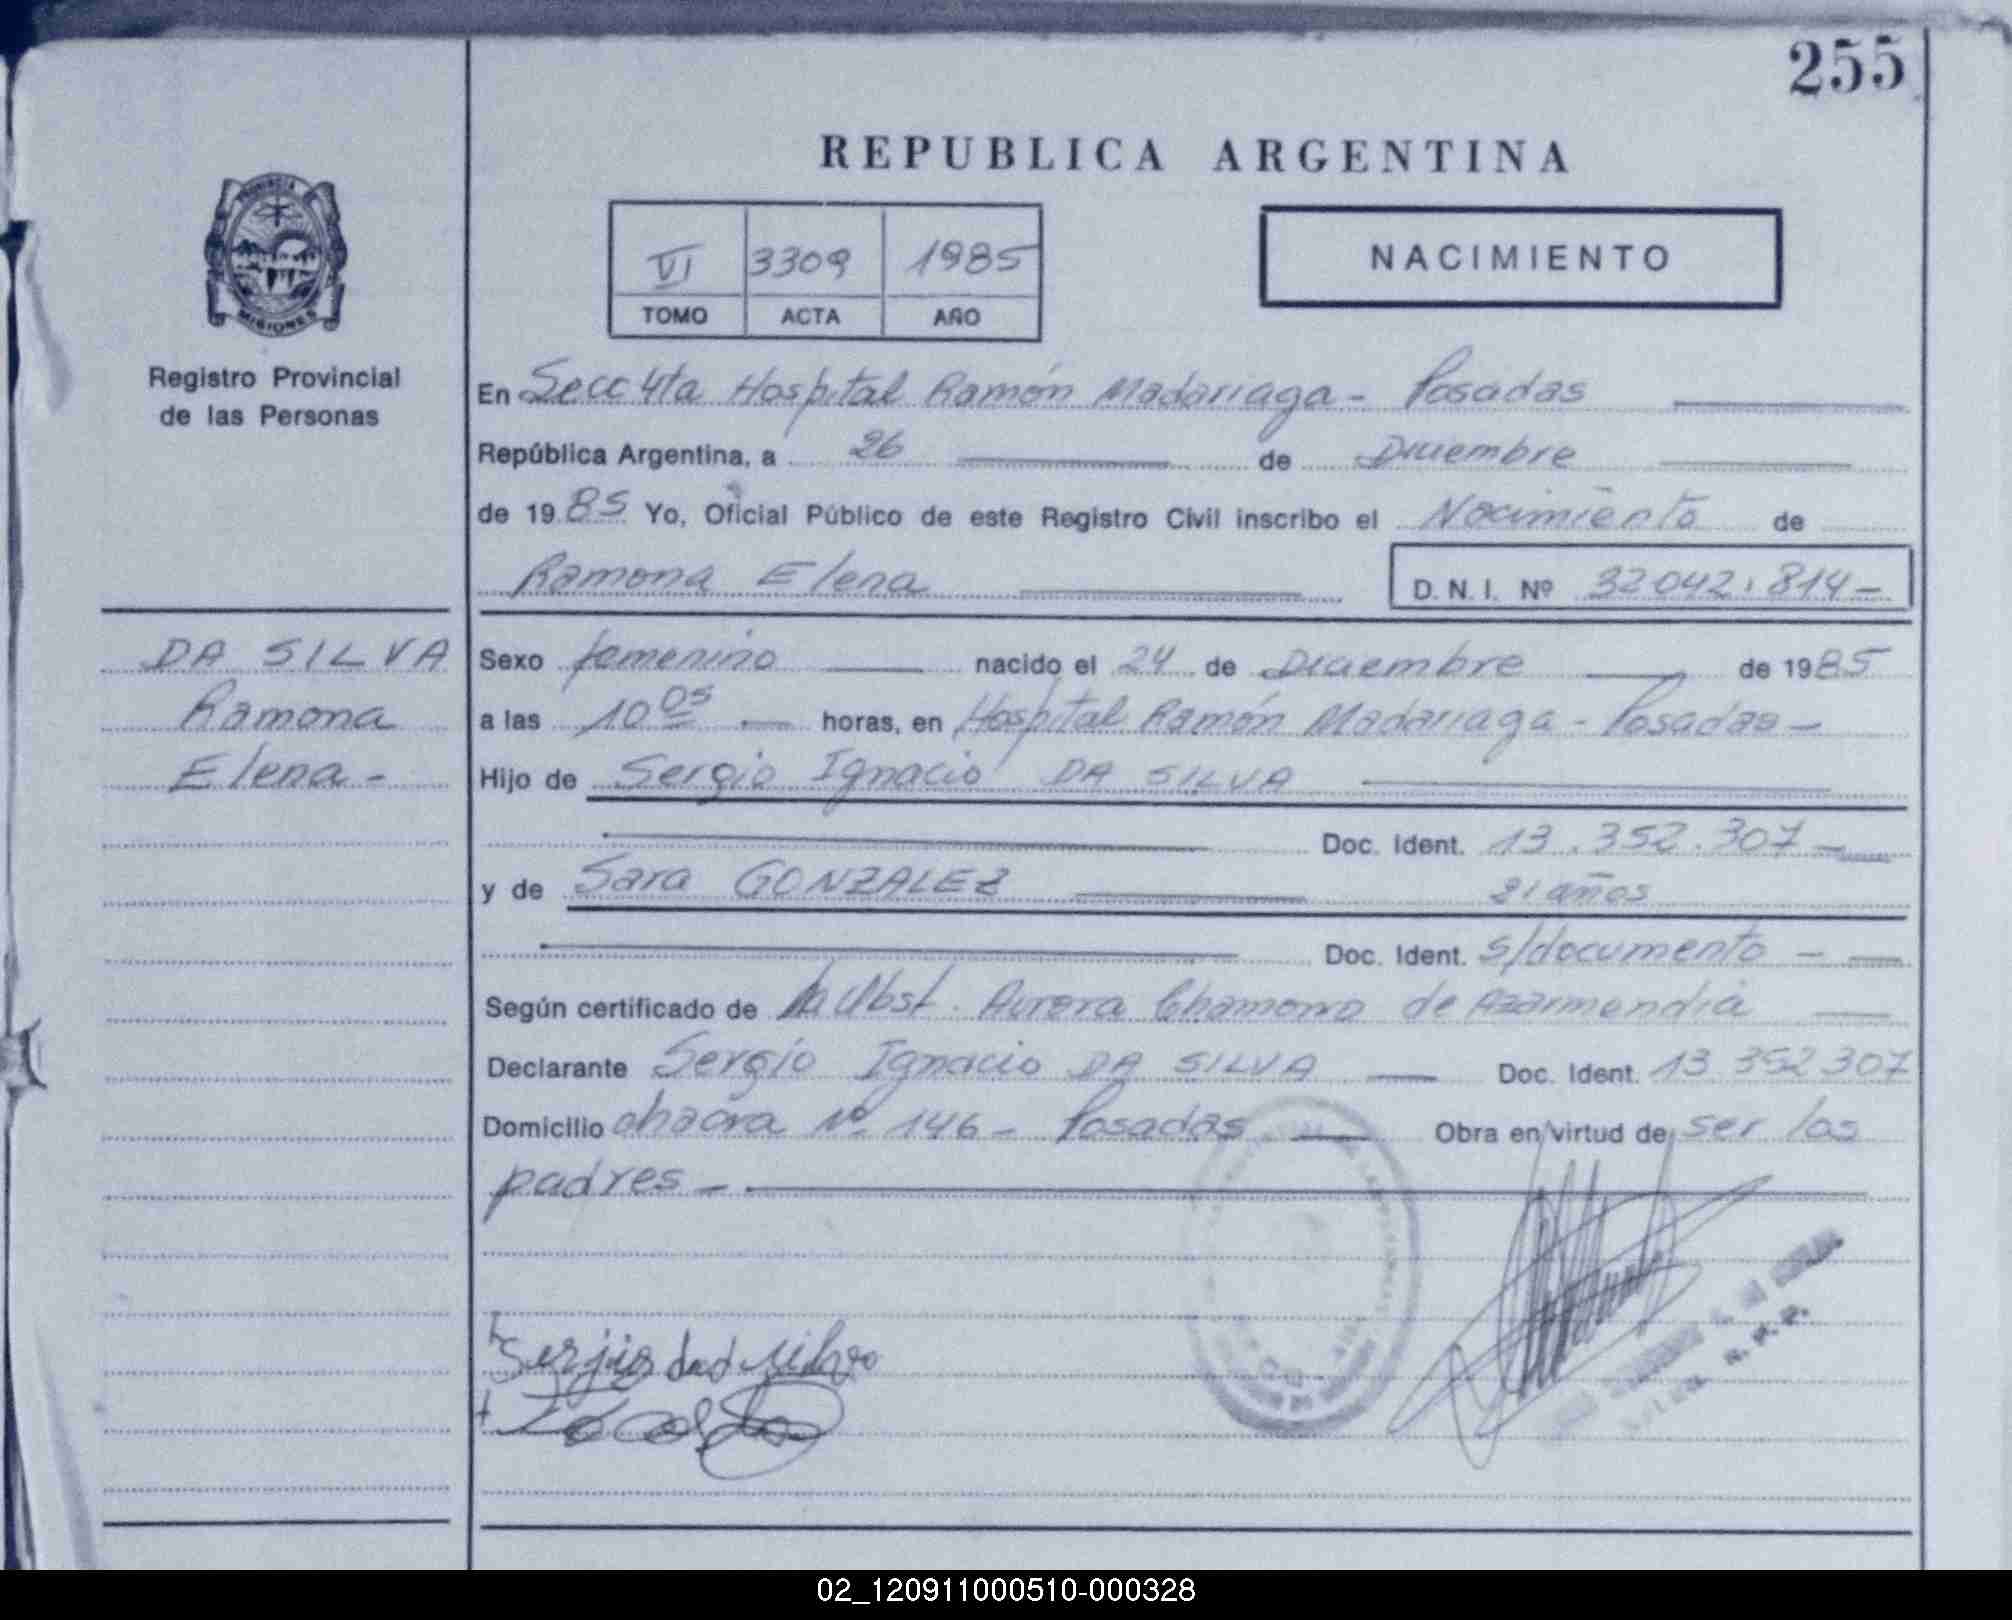 255
REPUBLICA ARGENTINA
PROVINCIA DE
MISIONES
Registro Provincial
de las Personas
VI 3309 1985
TOMO ACTA AÑO
NACIMIENTO
En Secc 4ta Hospital Ramón Madariaga - Posadas
República Argentina, a 26 de Diciembre
de 1985 Yo, Oficial Público de este Registro Civil inscribo el Nacimiento de
Ramona Elena D. N. I. Nº 32042.814-
DA SILVA
Ramona
Elena-
Sexo femenino nacido el 24 de Diciembre de 1985
a las 10 05 horas, en Hospital Ramón Madariaga - Posadas -
Hijo de Sergio Ignacio DA SILVA
Doc. Ident. 13.352.307-
y de Sara GONZALEZ 21 años
Doc. Ident. s/documento -
Según certificado de la Obst. Aurora Chamorro de Azarmendia
Declarante Sergio Ignacio DA SILVA Doc. Ident. 13 352 307
Domicilio chacra Nº 146 - Posadas Obra en virtud de ser los
padres -
02_120911000510-000328